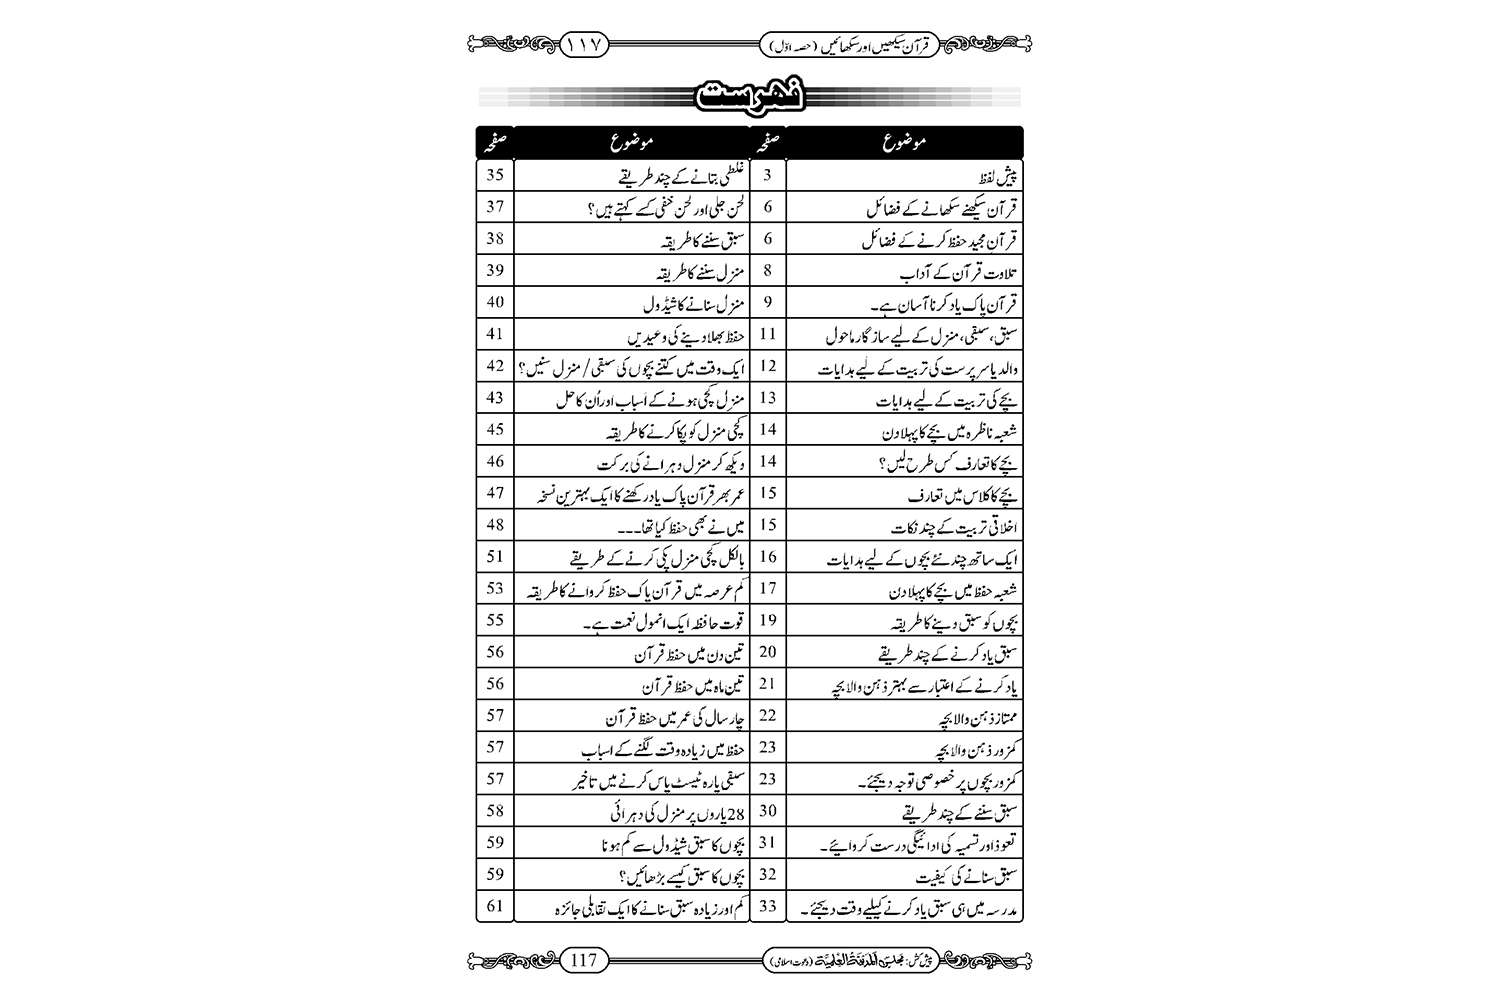 قرآن سیکھیں اور سکھائیں (حصہ اوّل) ۱۱۷
فہرست
موضوع صفحہ موضوع صفحہ
پیش لفظ 3 غلطی بتانے کے چند طریقے 35
قرآن سیکھنے سکھانے کے فضائل 6 لحن جلی اور لحن خفی کسے کہتے ہیں؟ 37
قرآنِ مجید حفظ کرنے کے فضائل 6 سبق سننے کا طریقہ 38
تلاوت قرآن کے آداب 8 منزل سننے کا طریقہ 39
قرآن پاک یاد کرنا آسان ہے۔ 9 منزل سنانے کا شیڈول 40
سبق، سبقی، منزل کے لیے سازگار ماحول 11 حفظ بھلا دینے کی وعیدیں 41
والد یا سرپرست کی تربیت کے لیے ہدایات 12 ایک وقت میں کتنے بچوں کی سبقی/منزل سنیں؟ 42
بچے کی تربیت کے لیے ہدایات 13 منزل کچی ہونے کے اَسباب اور اُن کا حل 43
شعبہ ناظرہ میں بچے کا پہلا دن 14 کچی منزل کو پکا کرنے کا طریقہ 45
بچے کا تعارف کس طرح لیں؟ 14 دیکھ کر منزل دہرانے کی برکت 46
بچے کا کلاس میں تعارف 15 عمر بھر قرآن پاک یاد رکھنے کا ایک بہترین نسخہ 47
اخلاقی تربیت کے چند نکات 15 میں نے بھی حفظ کیا تھا۔۔۔ 48
ایک ساتھ چند نئے بچوں کے لیے ہدایات 16 بالکل کچی منزل پکی کرنے کے طریقے 51
شعبہ حفظ میں بچے کا پہلا دن 17 کم عرصہ میں قرآن پاک حفظ کروانے کا طریقہ 53
بچوں کو سبق دینے کا طریقہ 19 قوت حافظہ ایک انمول نعمت ہے۔ 55
سبق یاد کرنے کے چند طریقے 20 تین دن میں حفظ قرآن 56
یاد کرنے کے اعتبار سے بہتر ذہن والا بچہ 21 تین ماہ میں حفظ قرآن 56
ممتاز ذہن والا بچہ 22 چار سال کی عمر میں حفظ قرآن 57
کمزور ذہن والا بچہ 23 حفظ میں زیادہ وقت لگنے کے اسباب 57
کمزور بچوں پر خصوصی توجہ دیجئے۔ 23 سبقی پارہ ٹیسٹ پاس کرنے میں تاخیر 57
سبق سننے کے چند طریقے 30 28 پاروں پر منزل کی دہرائی 58
تعوذ اور تسمیہ کی ادائیگی درست کروائیے۔ 31 بچوں کا سبق شیڈول سے کم ہونا 59
سبق سنانے کی کیفیت 32 بچوں کا سبق کیسے بڑھائیں؟ 59
مدرسہ میں ہی سبق یاد کرنے کیلیے وقت دیجئے۔ 33 کم اور زیادہ سبق سنانے کا ایک تقابلی جائزہ 61
پیش کش: مجلس اَلْمَدِیْنَۃُ الْعِلْمِیَّۃ (دعوت اسلامی) 117